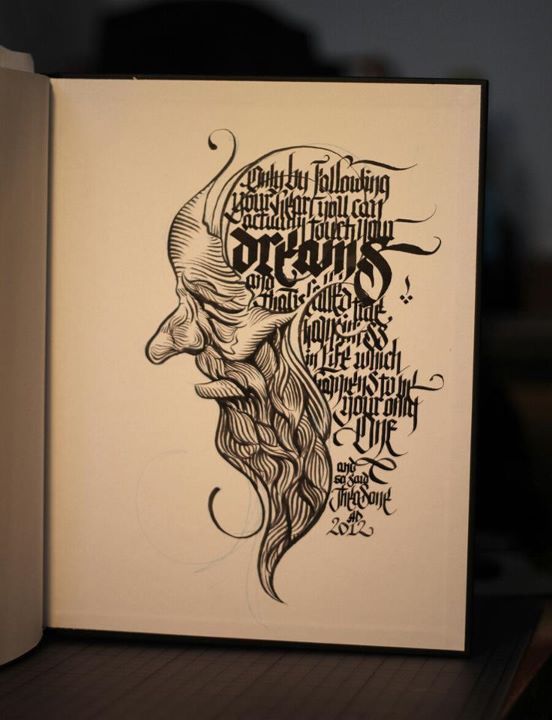 Only by Following
your heart you can
actually touch your
dreams
and
that is called true
happiness
in Life which
happens to be
your only
ONE
and
so said
Theosone
AD
2012